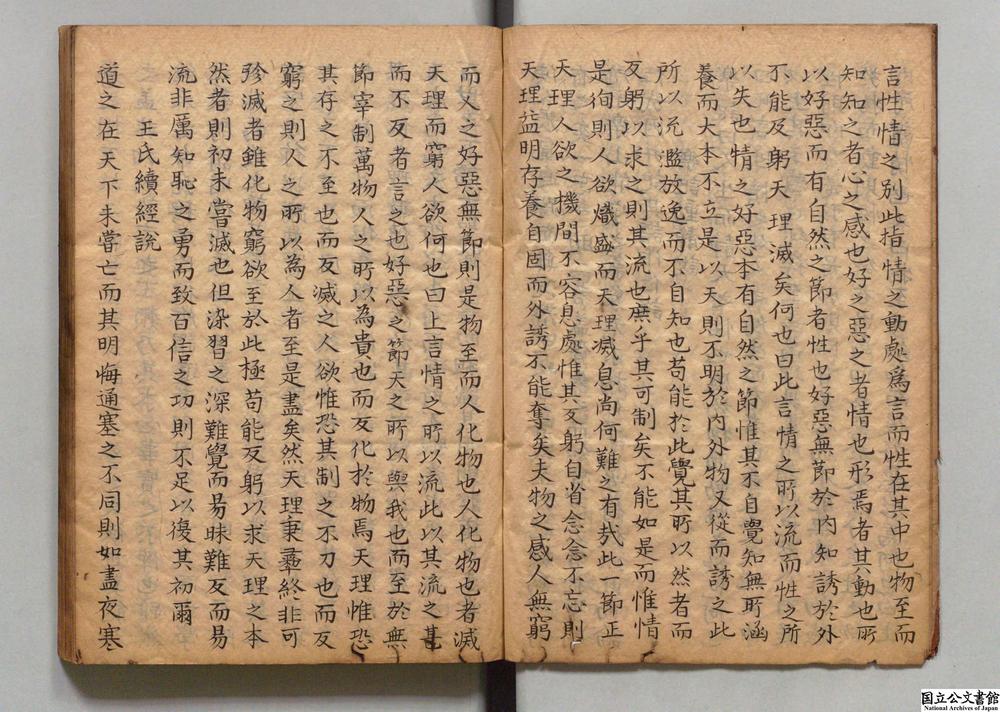 言性情之別此指情之動處為言而性在其中也物至而
知知之者心之感也好之惡之者情也形焉者其動也所
以好惡而有自然之節者性也好惡無節於內知誘於外
不能反躬天理滅矣何也曰此言情之所以流而性之所
以失也情之好惡本有自然之節惟其不自覺知無所涵
養而大本不立是以天則不明於內外物又從而誘之此
所以流濫放逸而不自知也苟能於此覺其所以然者而
反躬以求之則其流也庶乎其可制矣不能如是而惟情
是徇則人欲熾盛而天理滅息尚何難之有哉此一節正
天理人欲之機間不容息處惟其反躬自省念念不忘則
天理益明存養自固而外誘不能奪矣夫物之感人無窮
而人之好惡無節則是物至而人化物也人化物也者滅
天理而窮人欲何也曰上言情之所以流此以其流之甚
而不反者言之也好惡之節天之所以與我也而至於無
節宰制萬物人之所以為貴也而反化於物焉天理惟恐
其存之不至也而反滅之人欲惟恐其制之不力也而反
窮之則人之所以為人者至是盡矣然天理秉彝終非可
殄滅者雖化物窮欲至於此極苟能反躬以求天理之本
然者則初未嘗滅也但染習之深難覺而易昧難反而易
流非厲知恥之勇而致百倍之功則不足以復其初爾
王氏續經說
道之在天下未嘗亡而其明悔通塞之不同則如晝夜寒
国立公文書館
National Archives of Japan